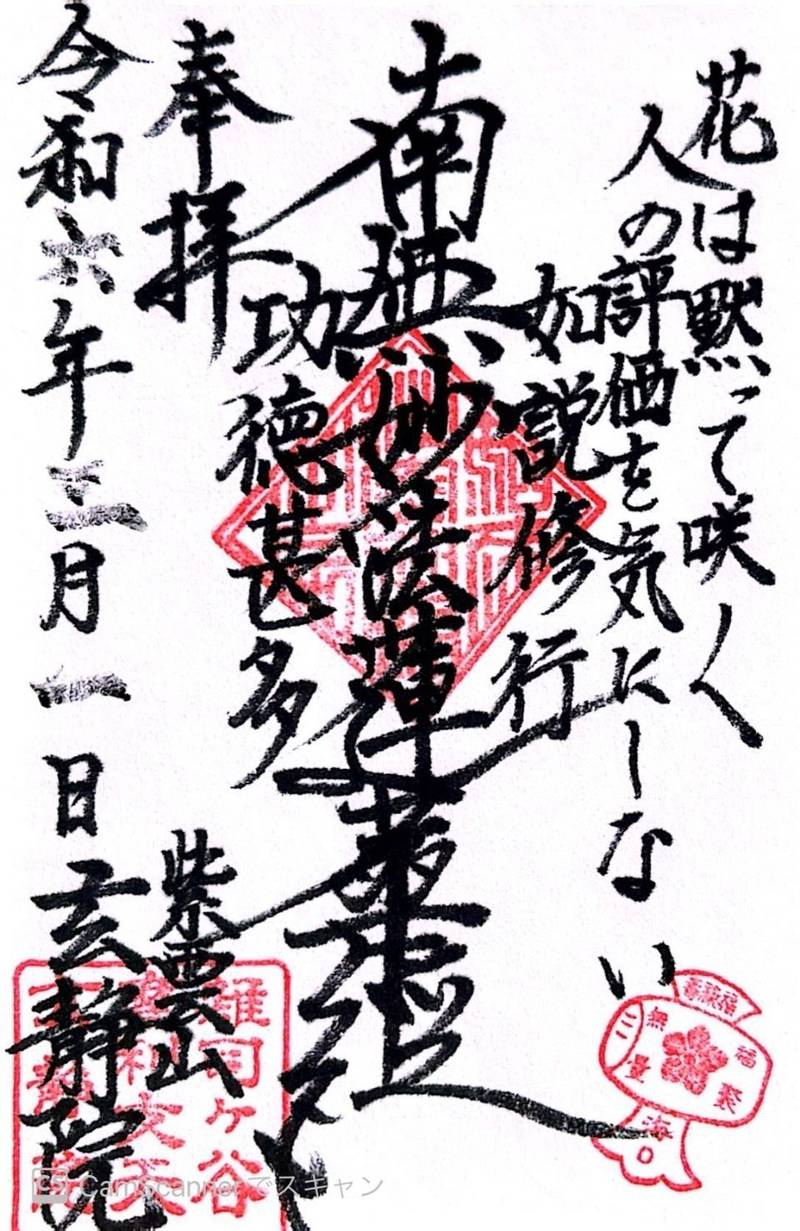 花は黙って咲く
人の評価を気にしない
如説修行
南無妙法蓮華経
功徳甚多
奉拝
紫雲山
令和六年三月一日 玄静院
雑司ヶ谷
福聚海無量
CamScannerでスキャン